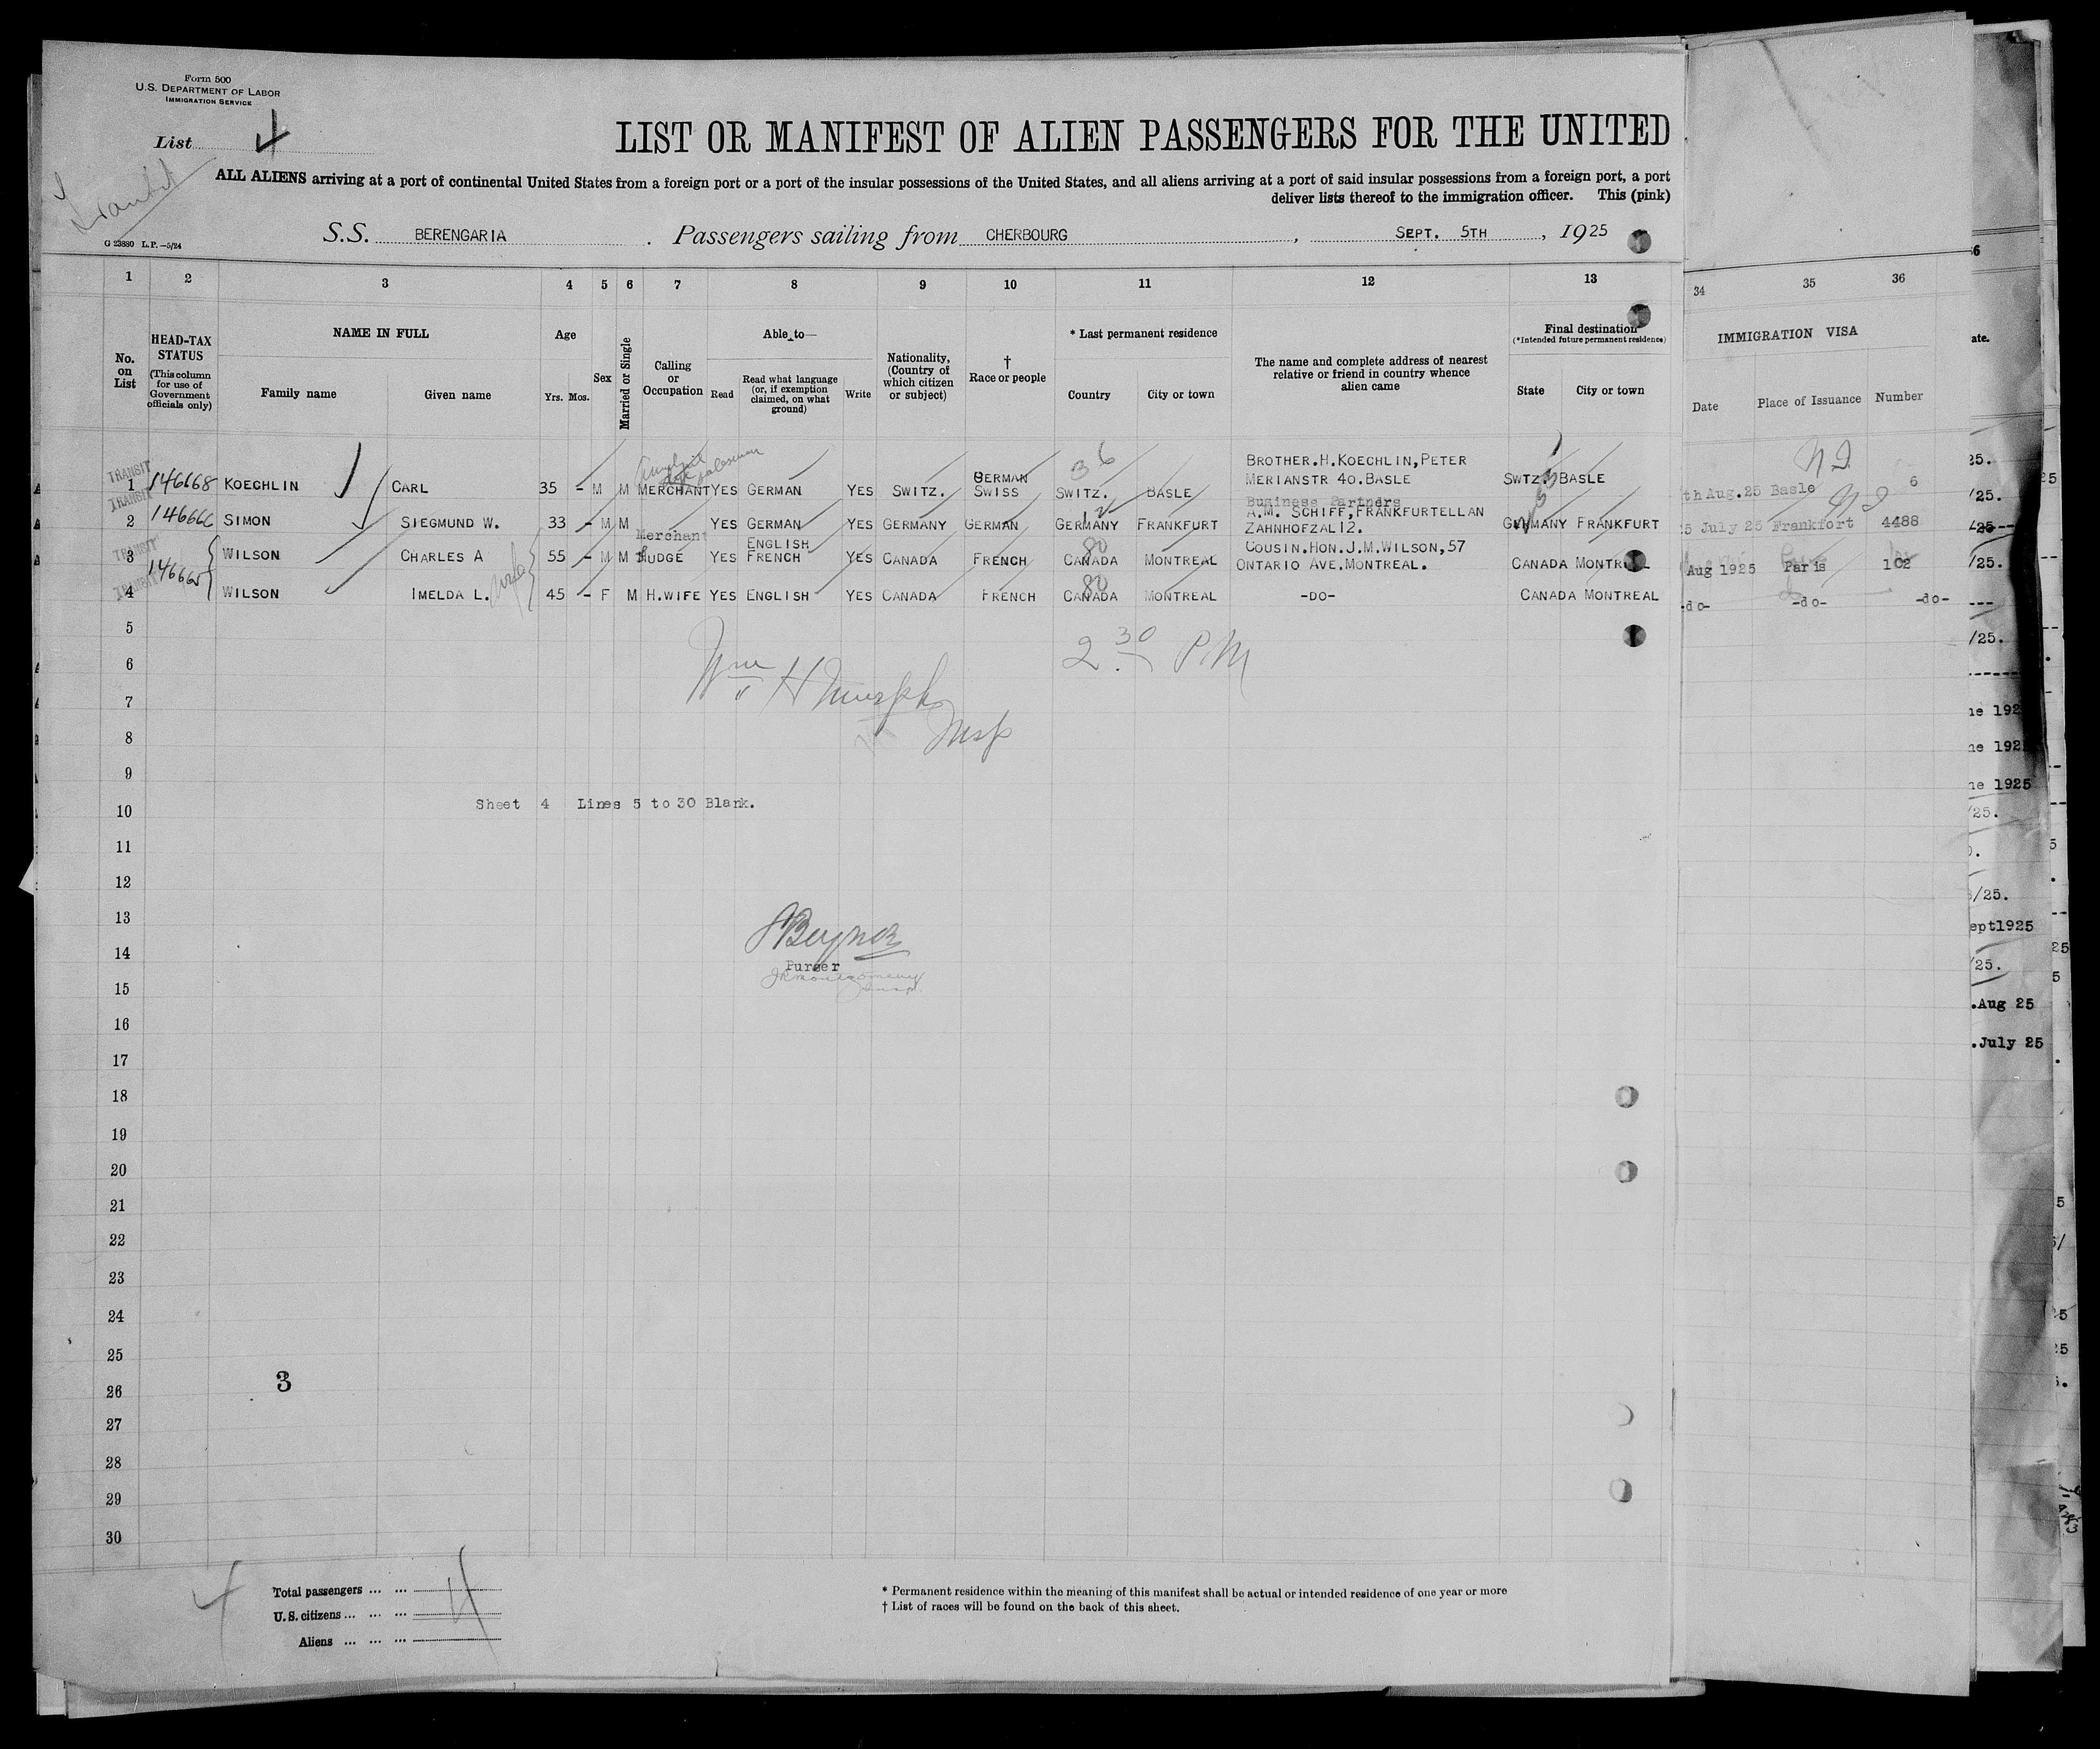 Form 500
U.S. DEPARTMENT OF LABOR
IMMIGRATION SERVICE
List 4
Transit
LIST OR MANIFEST OF ALIEN PASSENGERS FOR THE UNITED
ALL ALIENS arriving at a port of continental United States from a foreign port or a port of the insular possessions of the United States, and all aliens arriving at a port of said insular possessions from a foreign port, a port
deliver lists thereof to the immigration officer. This (pink)
G 23880 L.P.—5/24
S.S. BERENGARIA. Passengers sailing from CHERBOURG, SEPT. 5TH, 1925
1 2 3 4 5 6 7 8 9 10 11 12 13 34 35 36
No. on List
HEAD-TAX STATUS (This column for use of Government officials only)
NAME IN FULL
Family name Given name
Age
Yrs. Mos.
Sex
Married or Single
Calling or Occupation
Able to—
Read Read what language (or, if exemption claimed, on what ground) Write
Nationality, (Country of which citizen or subject)
† Race or people
* Last permanent residence
Country City or town
The name and complete address of nearest relative or friend in country whence alien came
Final destination
(*Intended future permanent residence)
State City or town
IMMIGRATION VISA
Date Place of Issuance Number
TRANSIT 1 146668 KOECHLIN CARL 35 - M M MERCHANT YES GERMAN YES SWITZ. GERMAN SWISS SWITZ. BASLE BROTHER.H.KOECHLIN,PETER MERIANSTR 40.BASLE SWTZ. BASLE th Aug.25 Basle 6
TRANSIT 2 146666 SIMON SIEGMUND W. 33 - M M Merchant YES GERMAN YES GERMANY GERMAN GERMANY FRANKFURT Business Partners A.M. SCHIFF,FRANKFURTELLAN ZAHNHOFZAL12. GERMANY FRANKFURT 5 July 25 Frankfort 4488
TRANSIT 3 146665 WILSON CHARLES A 55 - M M JUDGE YES ENGLISH FRENCH YES CANADA FRENCH CANADA MONTREAL COUSIN.HON.J.M.WILSON,57 ONTARIO AVE.MONTREAL. CANADA MONTREAL Aug 1925 Paris 102
TRANSIT 4 WILSON wife IMELDA L. 45 - F M H.WIFE YES ENGLISH YES CANADA FRENCH CANADA MONTREAL -DO- CANADA MONTREAL -do- -do- -do-
36
12
80
80
5
6
7
8
9
10
11
12
13
14
15
16
17
18
19
20
21
22
23
24
25
26
27
28
29
30
2 30 P.M
Wm H Murphy
Insp
Sheet 4 Lines 5 to 30 Blank.
Purser
3
Total passengers ... ...
U.S. citizens ... ... ...
Aliens ... ... ...
4
* Permanent residence within the meaning of this manifest shall be actual or intended residence of one year or more
† List of races will be found on the back of this sheet.
ate.
25.
/25.
/25.
/25.
ne 1925
/25.
ept1925
/25.
.Aug 25
.July 25